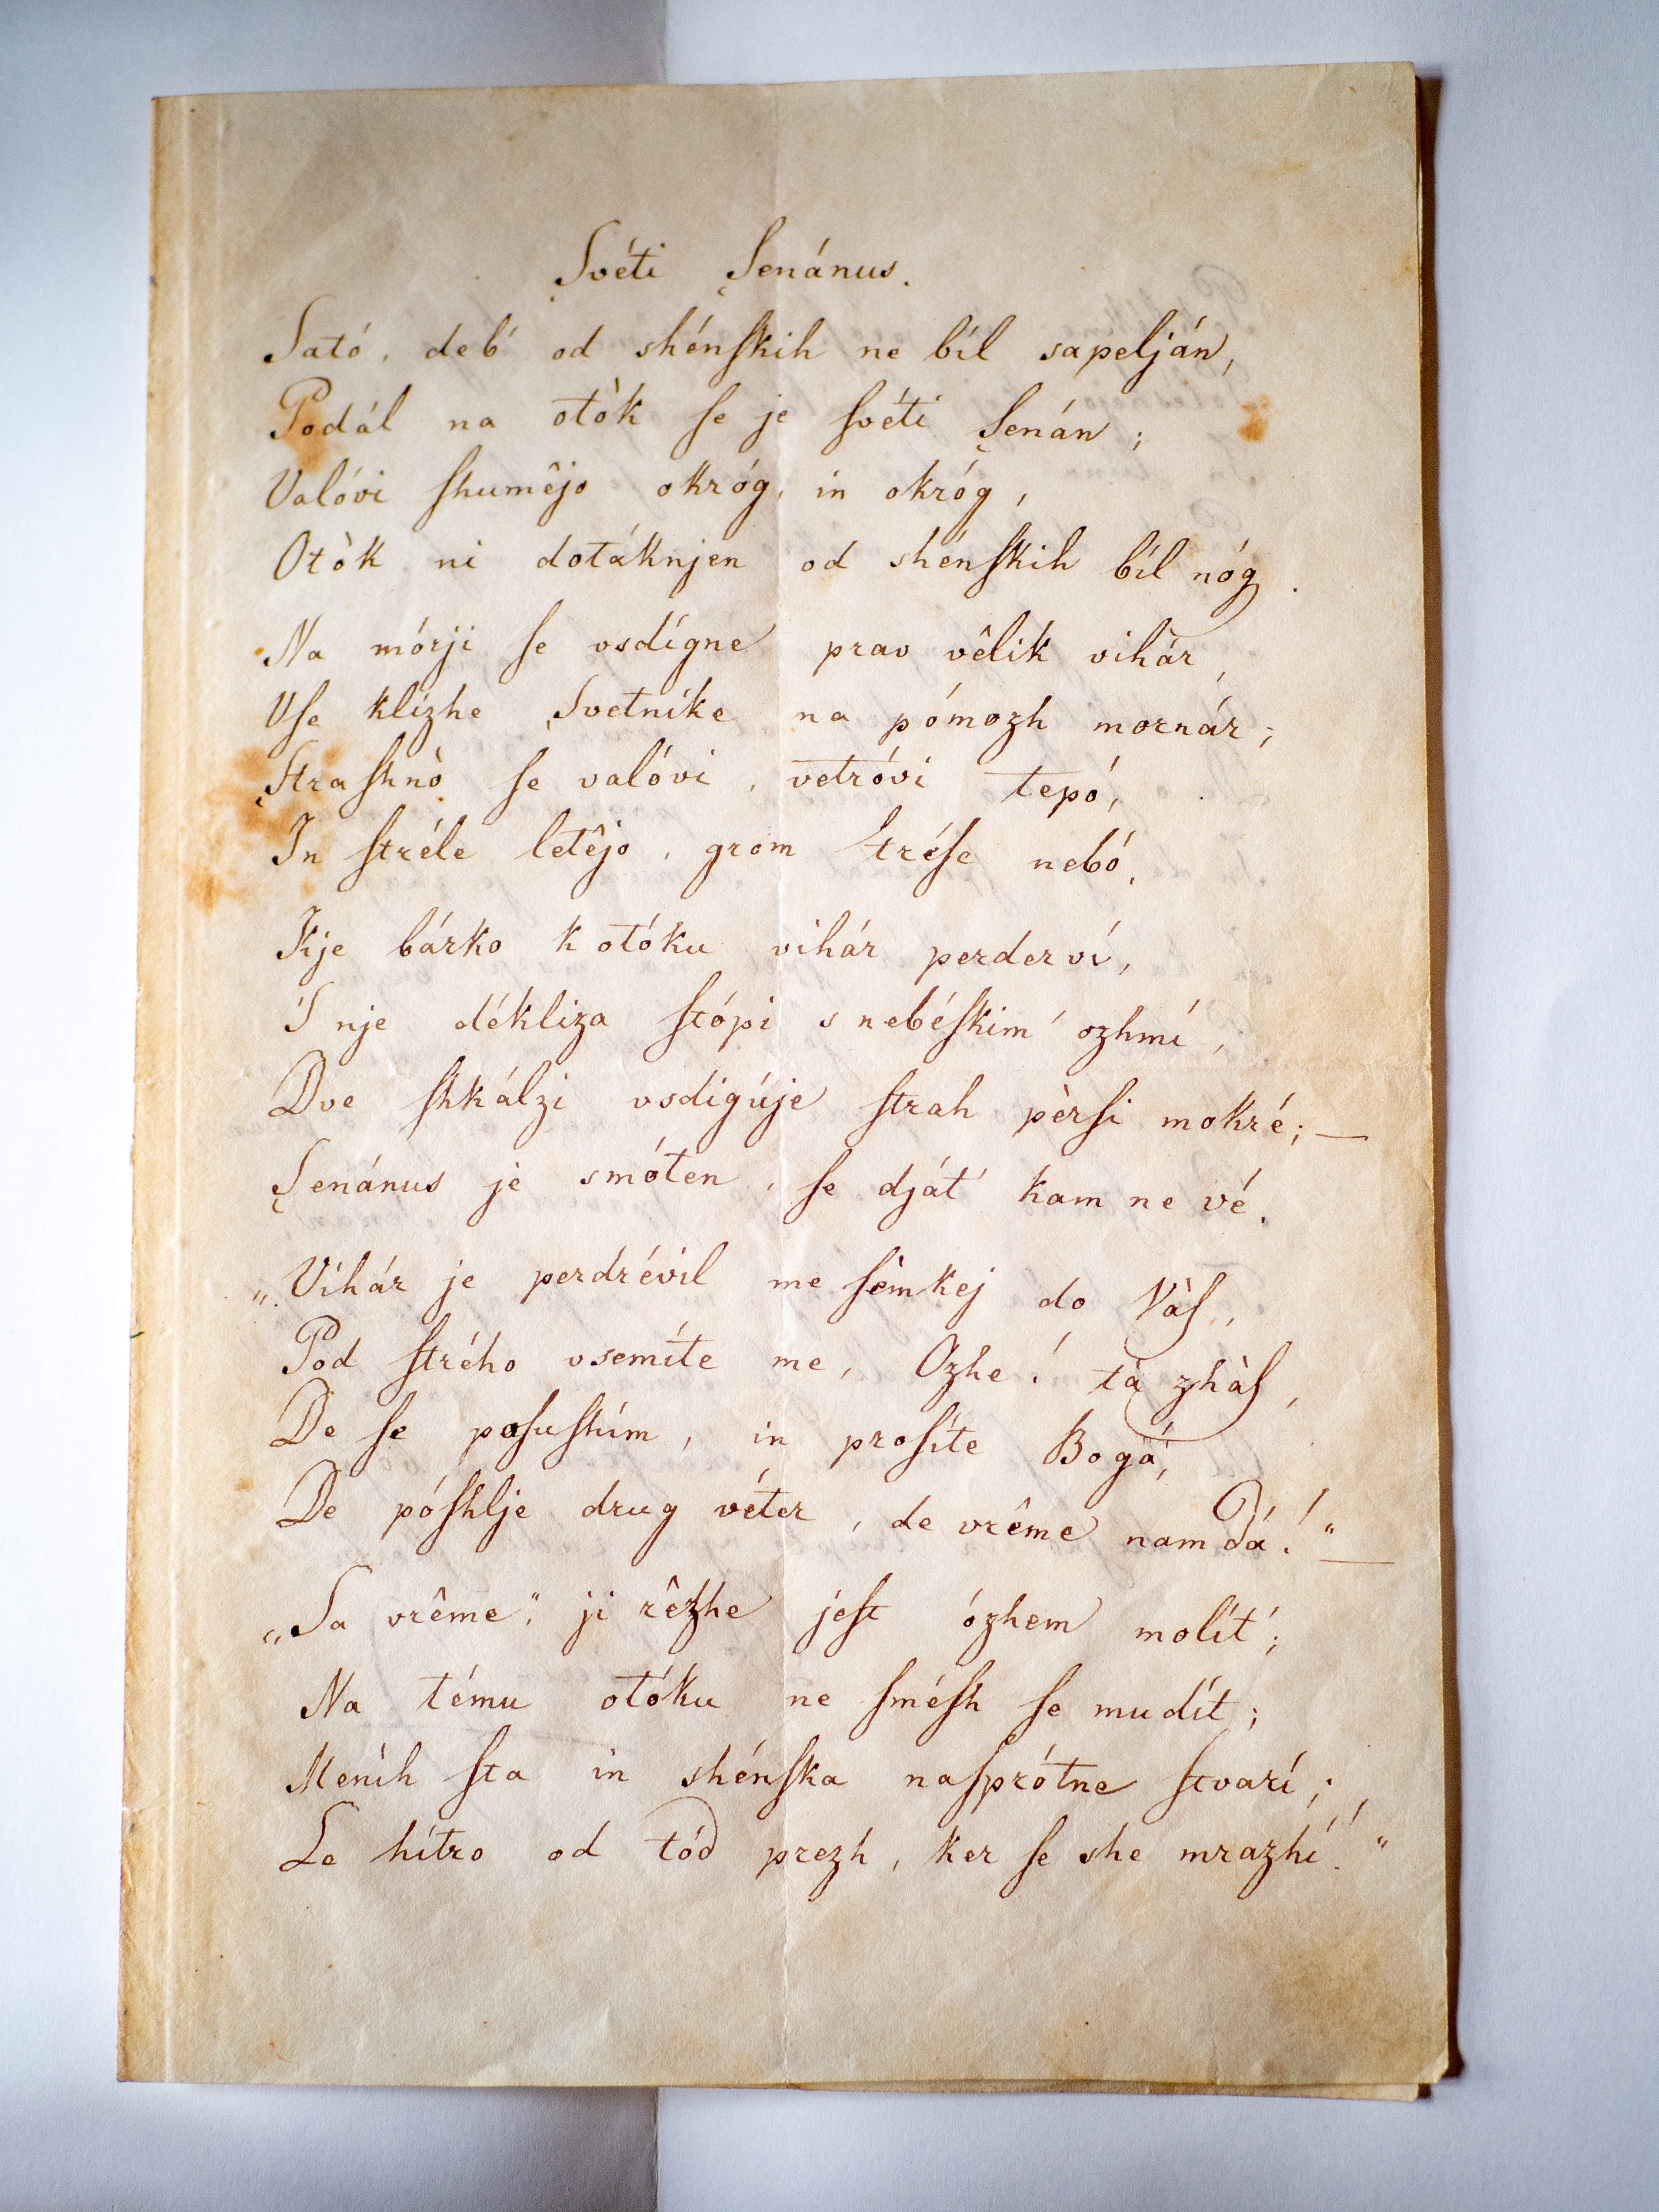 Svéti Senánus.
Sató, deb' od shénſkih ne bíl sapelján,
Podál na otòk ſe je ſvéti Senán;
Valóvi ſhumêjo okróg, in okróg,
Otòk ni dotáknjen od shénſkih bíl nóg.
Na mórji ſe vsdígne prav vêlik vihár,
Vſe klízhe Svetníke na pómozh mornár;
Straſhnò ſe valóvi, vetróvi tepó,
In ſtréle letêjo, grom tréſe nebó.
Kje bárko k otóku vihár perderví,
S nje dékliza ſtópi s nebéſkim' ozhmí,
Dve ſhkálzi vsdigúje ſtrah pèrſi mokré; —
Senánus je smóten, ſe dját' kam ne vé.
„Vihár je perdrévil me ſèmkej do Vàſ,
Pod ſtrého vsemíte me, Ozhe! tà zhàſ,
De ſe poſuſhím, in proſíte Bogá,
De póſhlje drug véter, de vrême nam dá!" —
„Sa vrême," ji rêzhe jeſt ózhem molít';
Na tému otóku ne ſméſh ſe mudít;
Meníh ſta in shénſka naſprótne ſtvarí;
Le hítro od tód prezh, ker ſe she mrazhí!"